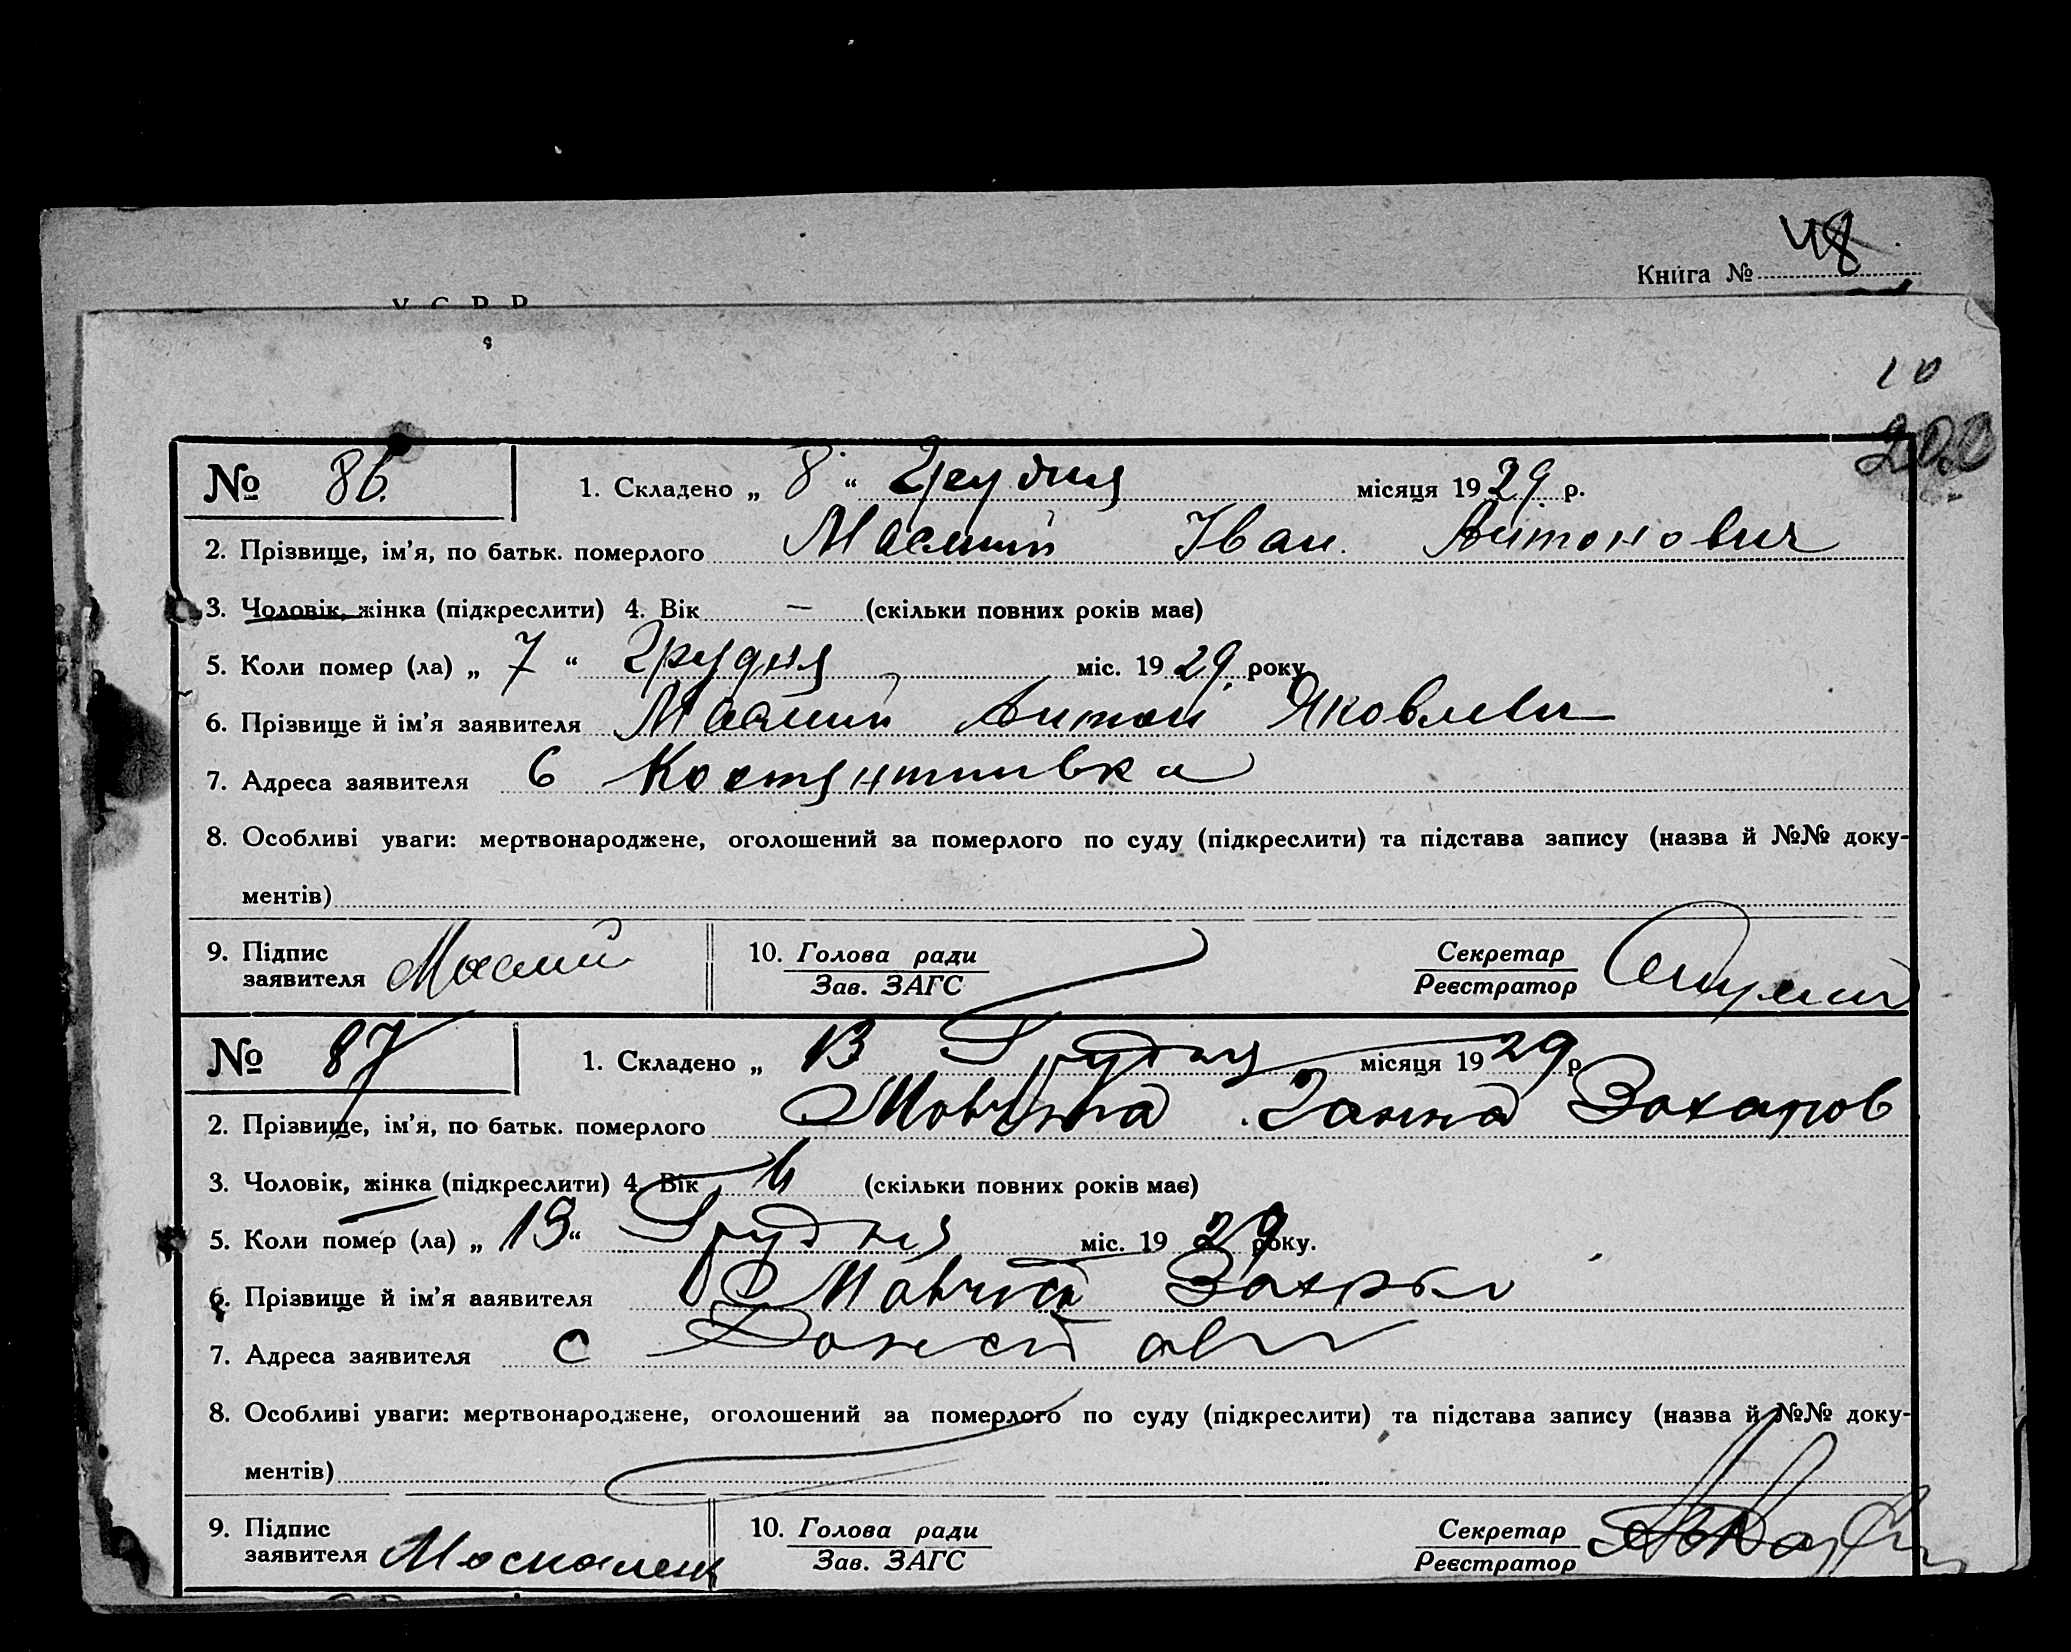 48
Книга №
У. С. Р. Р.
10
202
№ 86. 1. Складено „ 8 “ Грудня місяця 1929 р.
2. Прізвище, ім’я, по батьк. померлого Маслий Іван. Антонович
3. Чоловік, жінка (підкреслити) 4. Вік — (скільки повних років має)
5. Коли помер (ла) „ 7 “ Грудня міс. 1929. року
6. Прізвище й ім’я заявителя Маслий Антон Яковлевич
7. Адреса заявителя с Костянтинівка
8. Особливі уваги: мертвонароджене, оголошений за померлого по суду (підкреслити) та підстава запису (назва й №№ доку-
ментів)
9. Підпис заявителя Маслий 10. Голова ради Секретар
Зав. ЗАГС Реєстратор
№ 87 1. Складено „ 13 Грудня місяця 1929 р
2. Прізвище, ім’я, по батьк. померлого Ганна Захаров
3. Чоловік, жінка (підкреслити) 4. Вік (скільки повних років має)
5. Коли помер (ла) „ 13 “ Грудня міс. 1929 року.
6. Прізвище й ім’я заявителя
7. Адреса заявителя с
8. Особливі уваги: мертвонароджене, оголошений за померлого по суду (підкреслити) та підстава запису (назва й №№ доку-
ментів)
9. Підпис заявителя Москаленк 10. Голова ради Секретар
Зав. ЗАГС Реєстратор